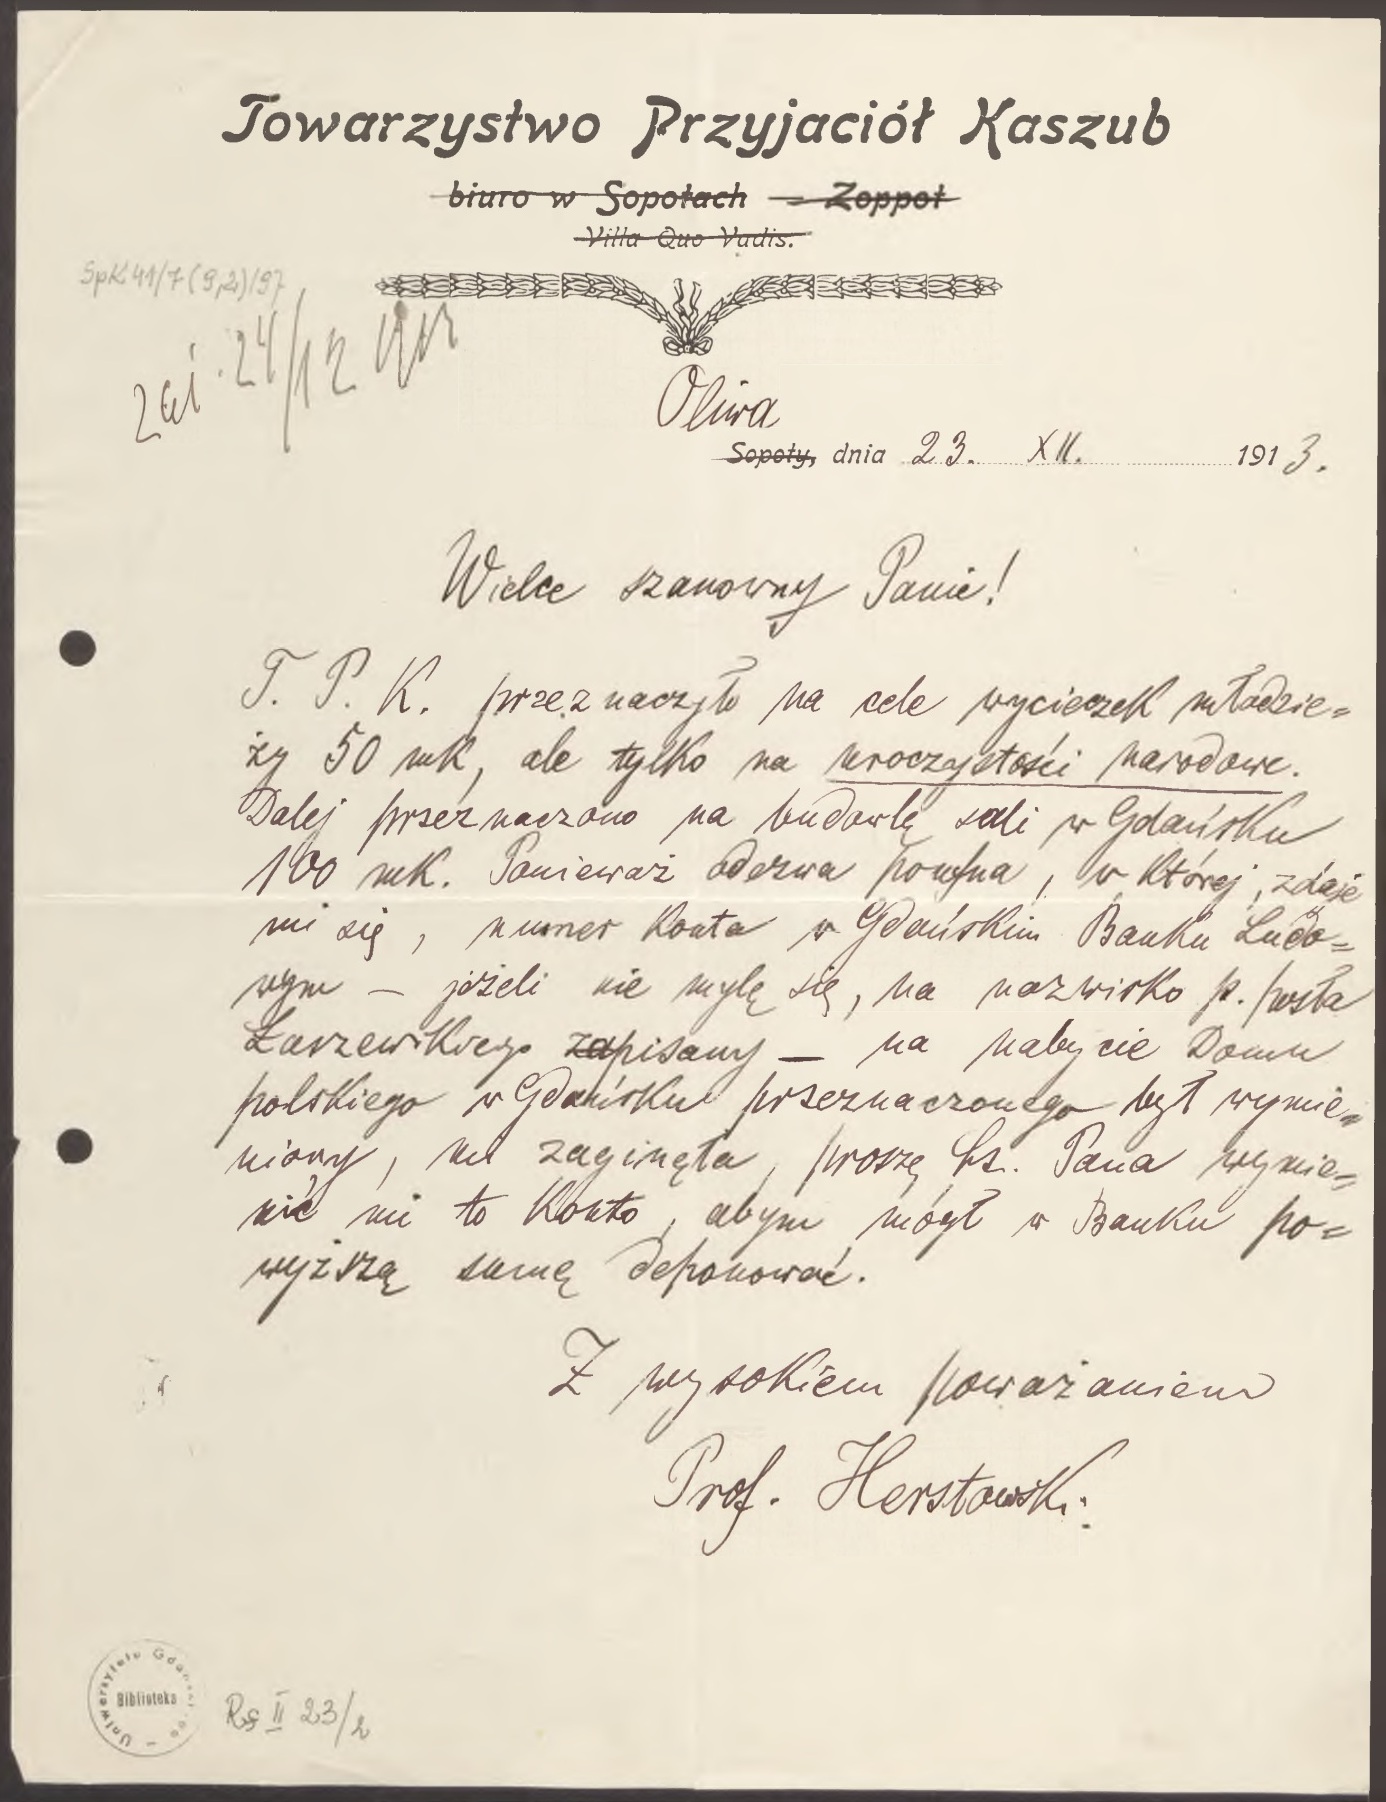 Towarzystwo Przyjaciół Kaszub
biuro w Sopotach = Zoppot
Villa Quo Vadis.
SpK 41/7 (9,2)/97
24/12
Oliwa
Sopoty, dnia 23. XII. 1913.
Wielce szanowny Panie!
T. P. K. przeznaczyło na cele wycieczek młodzie=
ży 50 mk, ale tylko na uroczystości narodowe.
Dalej przeznaczono na budowlę sali w Gdańsku
100 mk. Ponieważ odezwa poufna, w której, zdaje
mi się, numer konta w Gdańskim Banku Ludo=
wym – jeżeli nie mylę się, na nazwisko p. posła
Łaszewskiego zapisany – na nabycie Domu
polskiego w Gdańsku przeznaczonego był wymie=
niony, mi zaginęła, proszę Pana wymie=
nić mi to konto, abym mógł w Banku po=
wyższą sumę deponować.
Z wysokiem poważaniem
Prof. Herstowski.
Biblioteka
Uniwersytetu Gdańskiego
Rs II 23/2